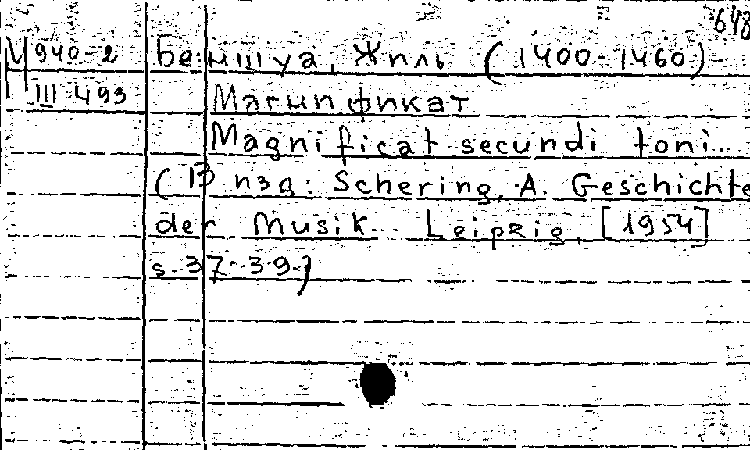 648
Ч 940-2 Беншуа, Жиль (1400-1460)
III-493 Магнификат
Magnificat secundi toni...
(В изд: Schering, A. Geschichte
der Musik... Leipzig, [1954]
s. 37-39.)